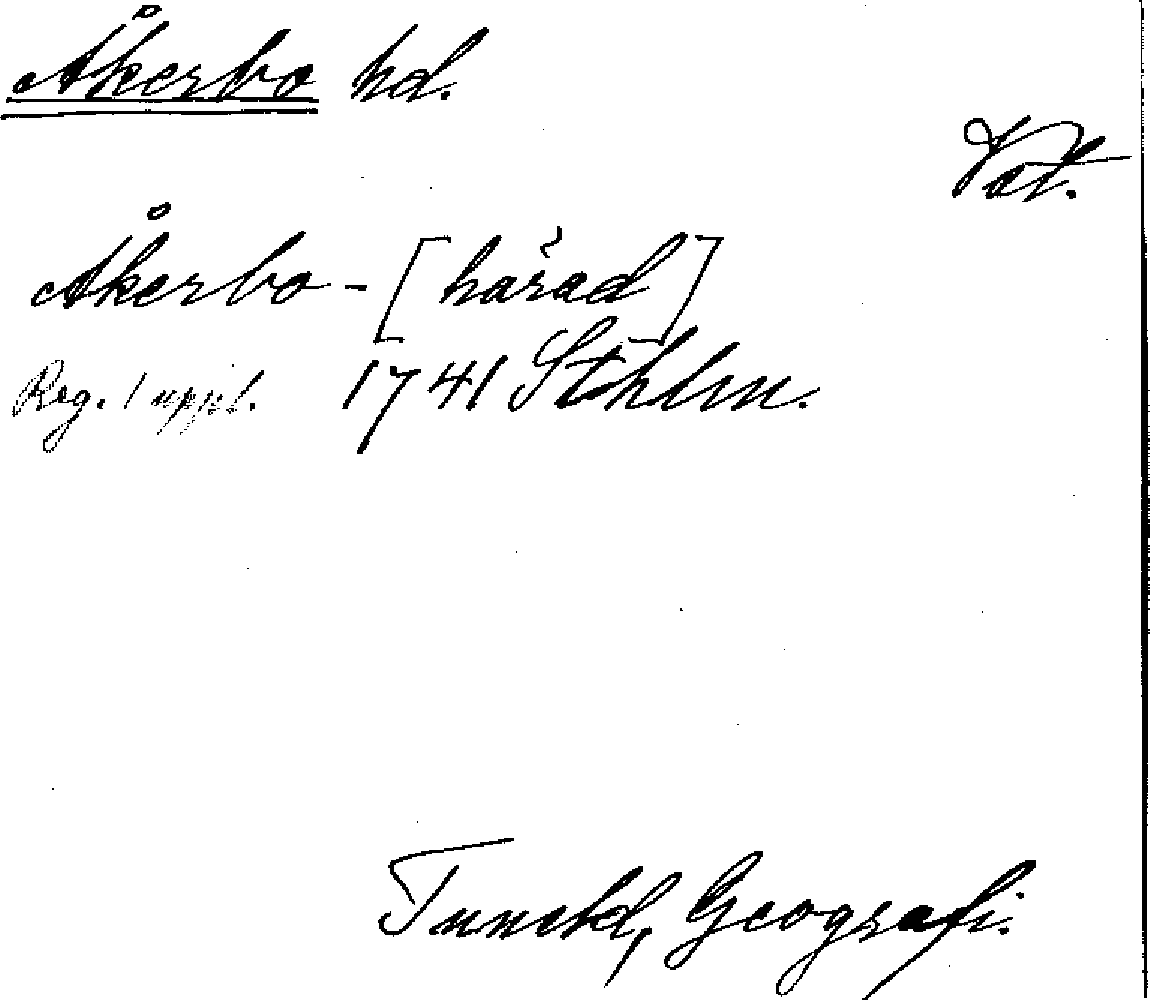 Åkerbo hd.
Vat.
Åkerbo - [härad]
Reg. 1 uppl. 1741 Sthlm.
Tuneld, Geografi.